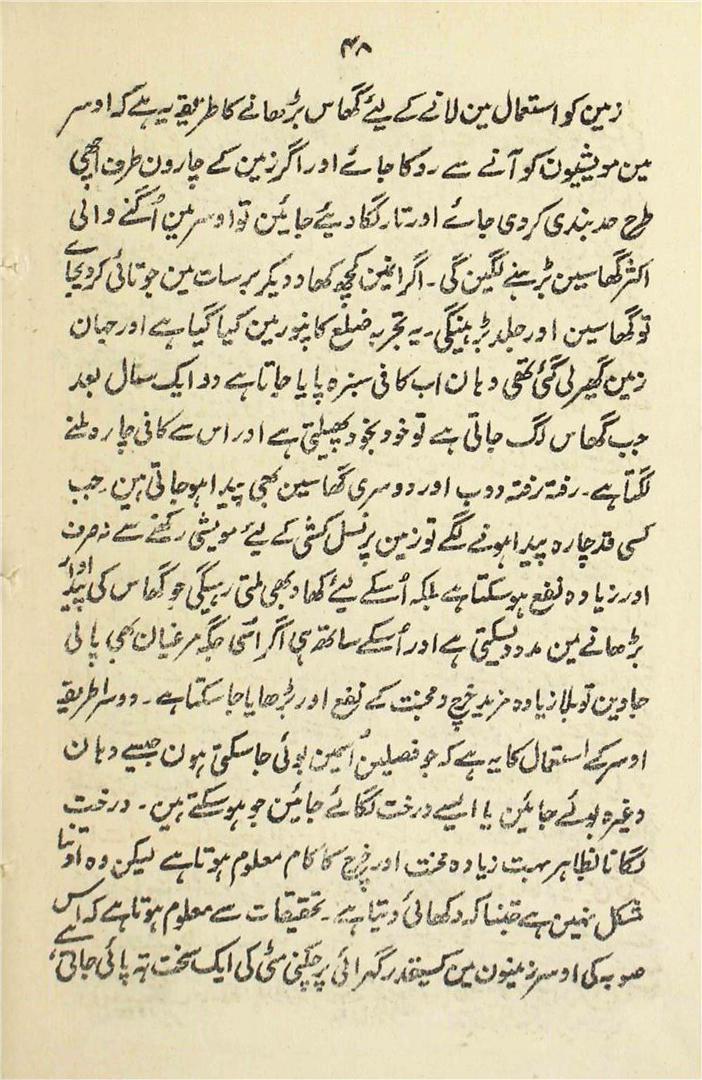 ۴۸
زمین کو استعمال مین لانے کے لیئے گھاس بڑھانے کا طریقہ یہ ہے کہ اوسر
مین مویشیون کو آنے سے روکا جائے اور اگر زمین کے چارون طرف اچھی
طرح حد بندی کر دی جائے اور تار لگا دیئے جایئن تو اوسر مین اُگنے والی
اکثر گھاسین بڑہنے لگین گی۔ اگر انہین کچھ کھاد دیکر برسات مین جوتائی کر دیجاے
تو گھاسین اور جلد بڑہینگی۔ یہ تجربہ ضلع کانپور مین کیا گیا ہے اور جہان
زمین گھیر لی گئی تھی وہان اب کافی سبزہ پایا جاتا ہے دو ایک سال بعد
جب گھاس لگ جاتی ہے تو خود بخود پھیلتی ہے اور اس سے کافی چارہ ملنے
لگتا ہے۔ رفتہ رفتہ دوب اور دوسری گھاسین بھی پیدا ہو جاتی ہین۔ جب
کسی قدر چارہ پیدا ہونے لگے تو زمین پر نسل کشی کے لیئے مویشی رکھنے سے نہ صرف
اور زیادہ نفع ہو سکتا ہے بلکہ اُسکے لیئے کھاد بھی ملتی رہیگی جو گھاس کی پیداوار
بڑھانے مین مدد دیسکتی ہے اور اُسکے ساتھ ہی اگر اسی جگہ مرغیان بھی پالی
جاوین تو بلا زیادہ مزید خرچ و محنت کے نفع اور بڑھایا جا سکتا ہے۔ دوسرا طریقہ
اوسر کے استعمال کا یہ ہے کہ جو فصلین اُسمین بوئی جا سکتی ہون جیسے دہان
وغیرہ بوئے جایئن یا ایسے درخت لگائے جایئن جو ہو سکتے ہین۔ درخت
لگانا بظاہر بہت زیادہ محنت اور خرچ کا کام معلوم ہوتا ہے لیکن وہ اوتنا
مشکل نہین ہے جتنا کہ دکھائی دیتا ہے۔ تحقیقات سے معلوم ہوتا ہے کہ اس
صوبہ کی اوسر زمینون مین کسیقدر گہرائی پر چکنی مٹی کی ایک سخت تہ پائی جاتی ہے